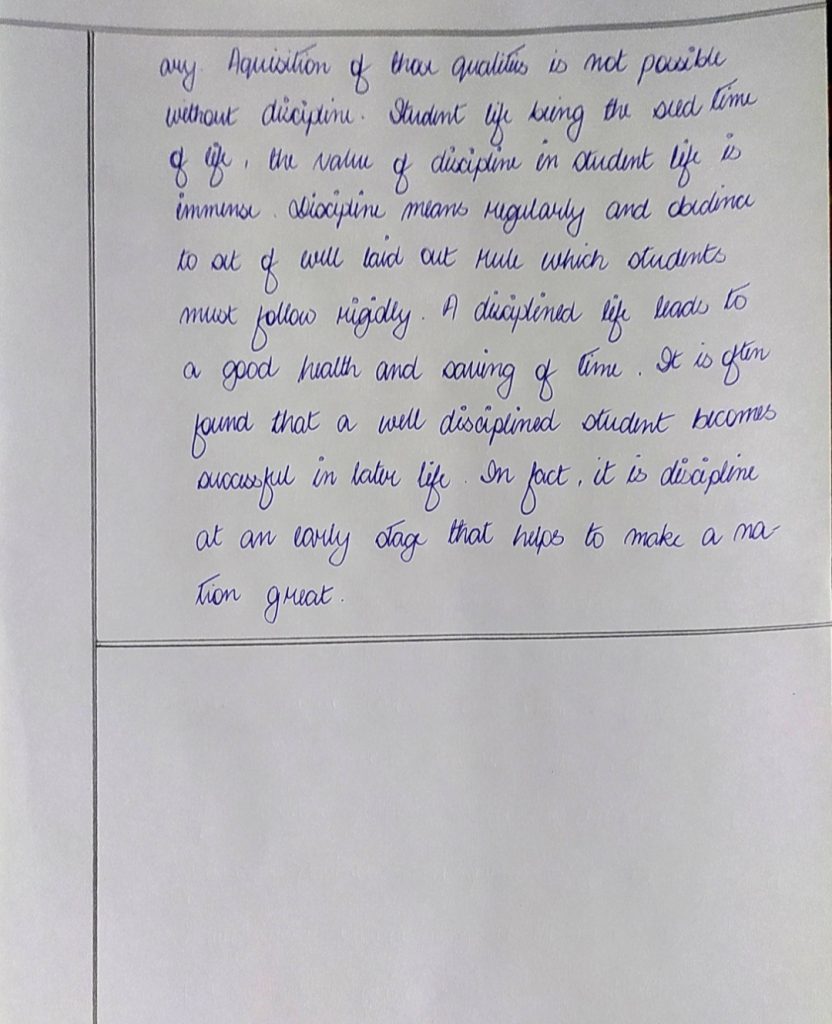 ary. Aquisition of these qualities is not possible
without discipline. Student life being the seed time
of life, the value of discipline in student life is
immense. Discipline means regularly and obedince
to set of well laid out rule which students
must follow rigidly. A disciplined life leads to
a good health and saving of time. It is often
found that a well disciplined student becomes
successful in later life. In fact, it is discipline
at an early stage that helps to make a na-
tion great.